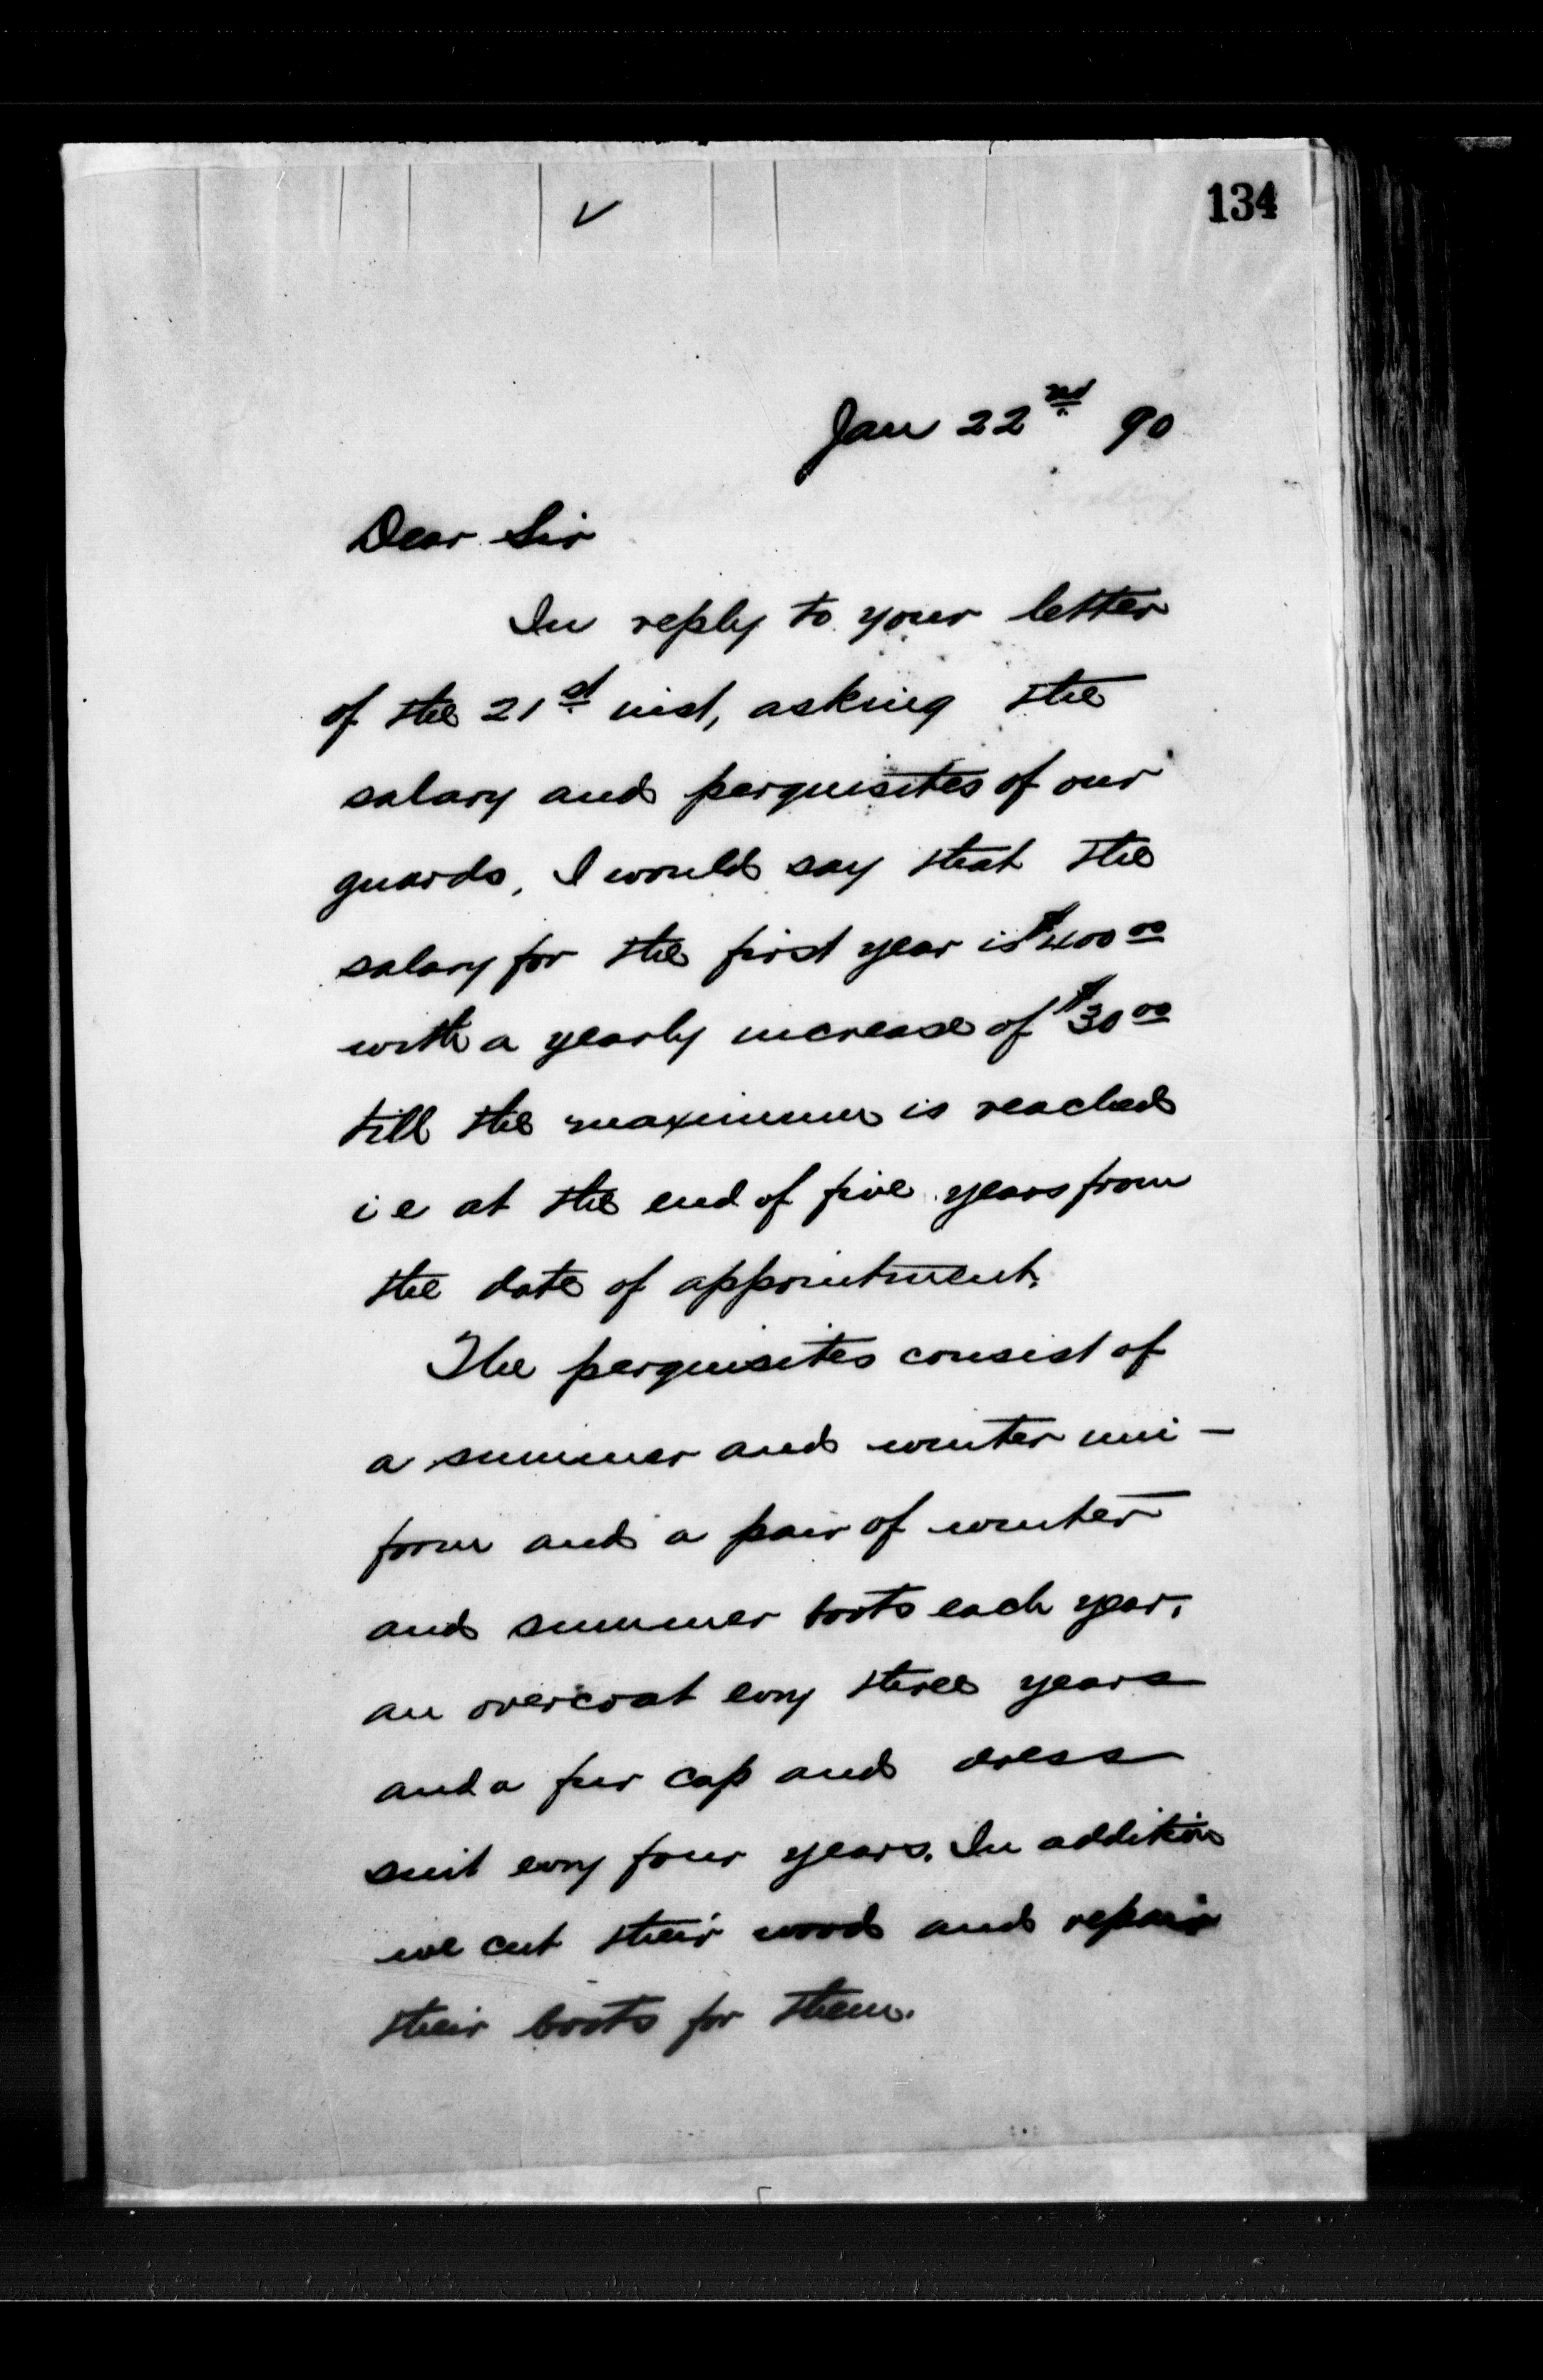 134
Jan 22nd 90
Dear Sir
In reply to your letter
of the 21st inst, asking the
salary and perquisites of our
guards, I would say that the
salary for the first year is $400.00
with a yearly increase of $30.00
till the maximum is reached
i e at the end of five years from
the date of appointment.
The perquisites consist of
a summer and winter uni-
form and a pair of winter
and summer boots each year,
an overcoat evry three years
and a fur cap and dress
suit evry four years. In addition
we cut their wood and repair
their boots for them.